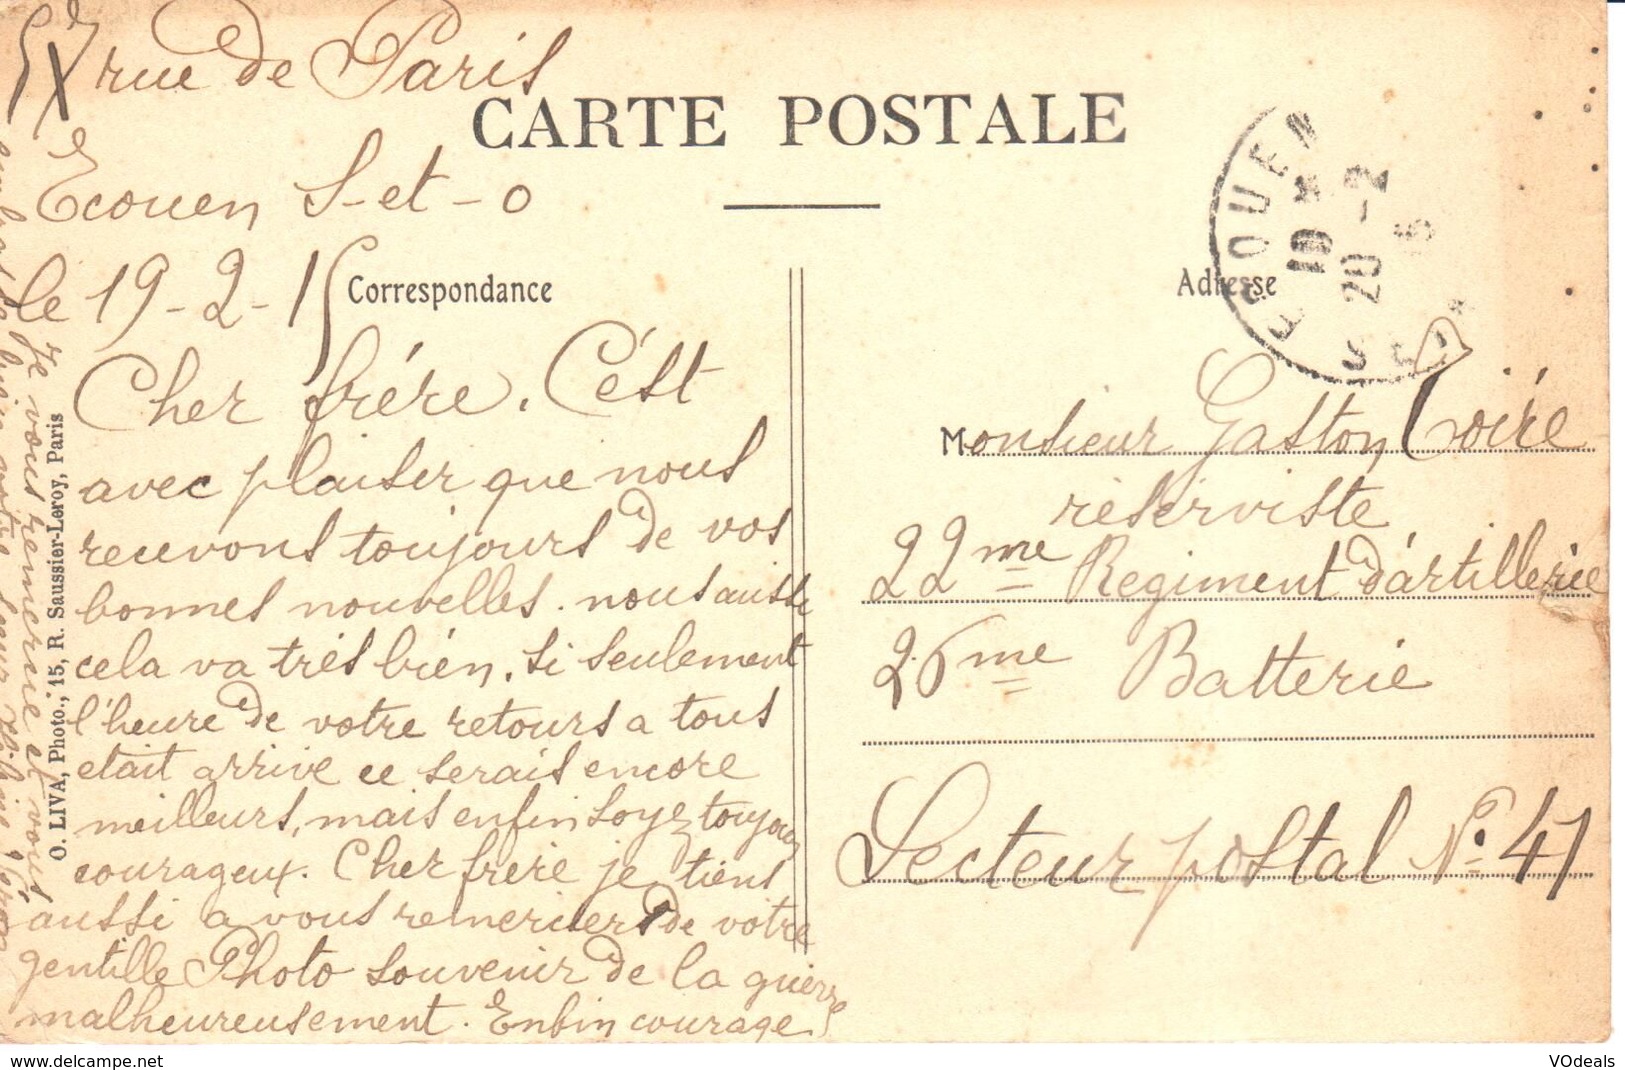 rue de Paris
CARTE POSTALE
Ecouen S-et-O
le 19-2-15
Correspondance
Cher frére. C'ést
avec plaisir que nous
recevons toujours de vos
bonnes nouvelles. nous aussi
cela va trés bien. si seulement
l'heure de votre retours a tous
etait arrive ce serais encore
meilleurs, mais enfin soyez toujours
courageux. Cher frere je tiens
aussi a vous remerciers de votre
gentille Photo souvenir de la guerre
malheureusement. Enfin courage
je vous remercie et vous
embrasse bien votre soeur
O. LIVA, Photo., 15, R. Saussier-Leroy, Paris
ECOUEN
19 *
20 -2
15
Adresse
Monsieur Gaston Coiré
réserviste
22me Regiment d'artillerie
26me Batterie
Secteur postal No. 41
www.delcampe.net
VOdeals